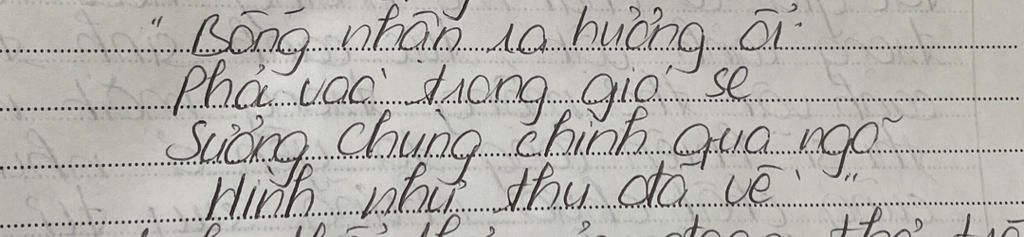 "Bỗng nhận ra hương ổi
Phả vào trong gió se
Sương chùng chình qua ngõ
Hình như thu đã về"